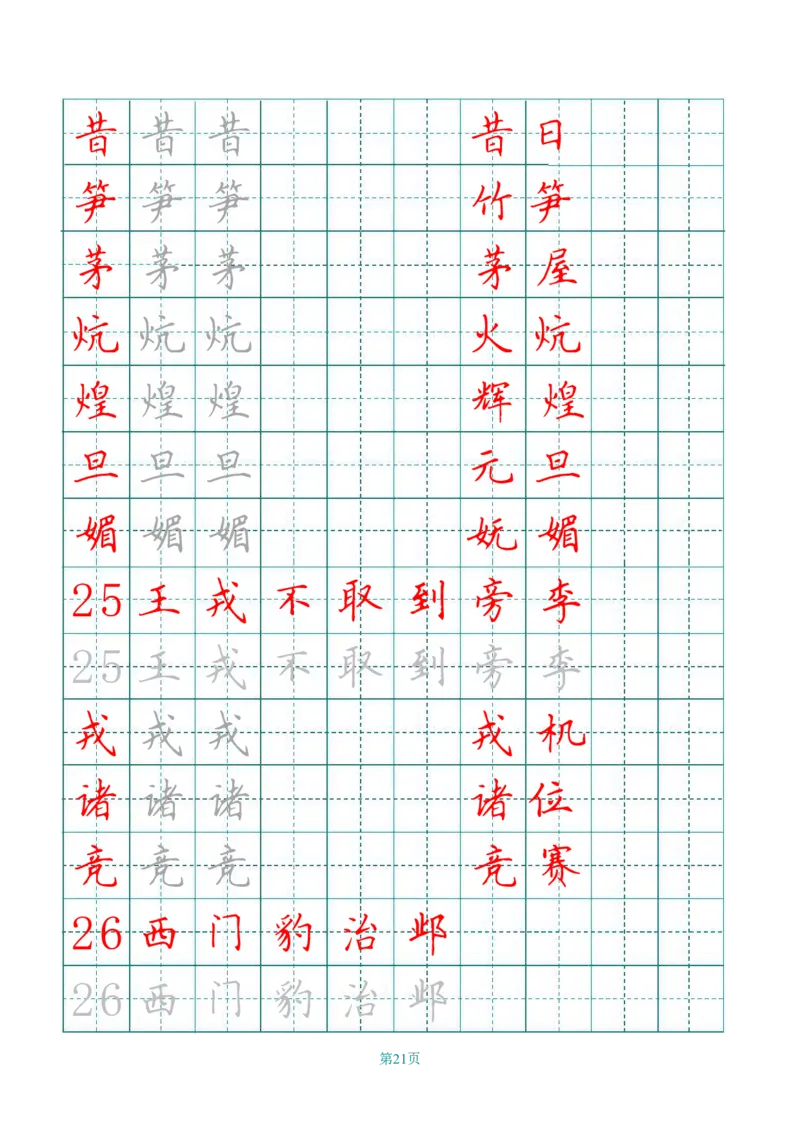 昔昔昔 昔日
笋笋笋 竹笋
茅茅茅 茅屋
炕炕炕 火炕
煌煌煌 辉煌
旦旦旦 元旦
媚媚媚 妩媚
25王戎不取到旁李
25王戎不取到旁李
戎戎戎 戎机
诸诸诸 诸位
竞竞竞 竞赛
26西门豹治邺
26西门豹治邺
第21页